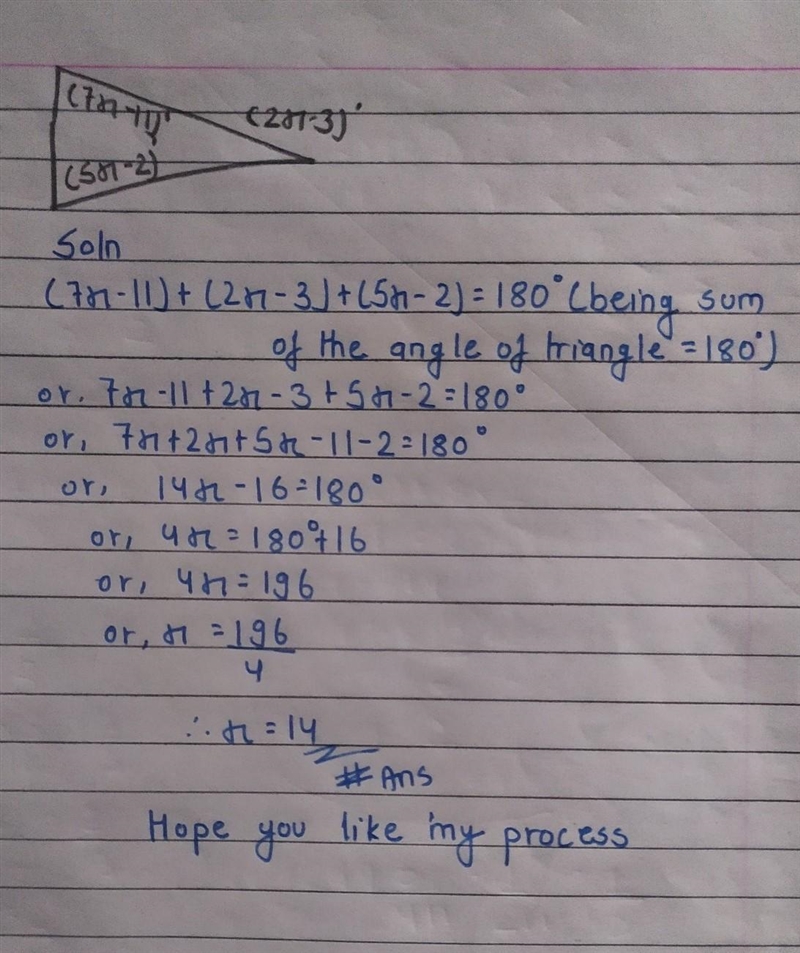 (7x-11)°
(2x-3)°
(5x-2)
Soln
(7x-11)+(2x-3)+(5x-2)=180°(being sum
of the angle of triangle=180°)
or. 7x-11+2x-3+5x-2=180°
or, 7x+2x+5x-11-2=180°
or, 14x-16=180°
or, 4x=180°+16
or, 4x=196
or, x=196
4
∴x=14
# Ans
Hope you like my process